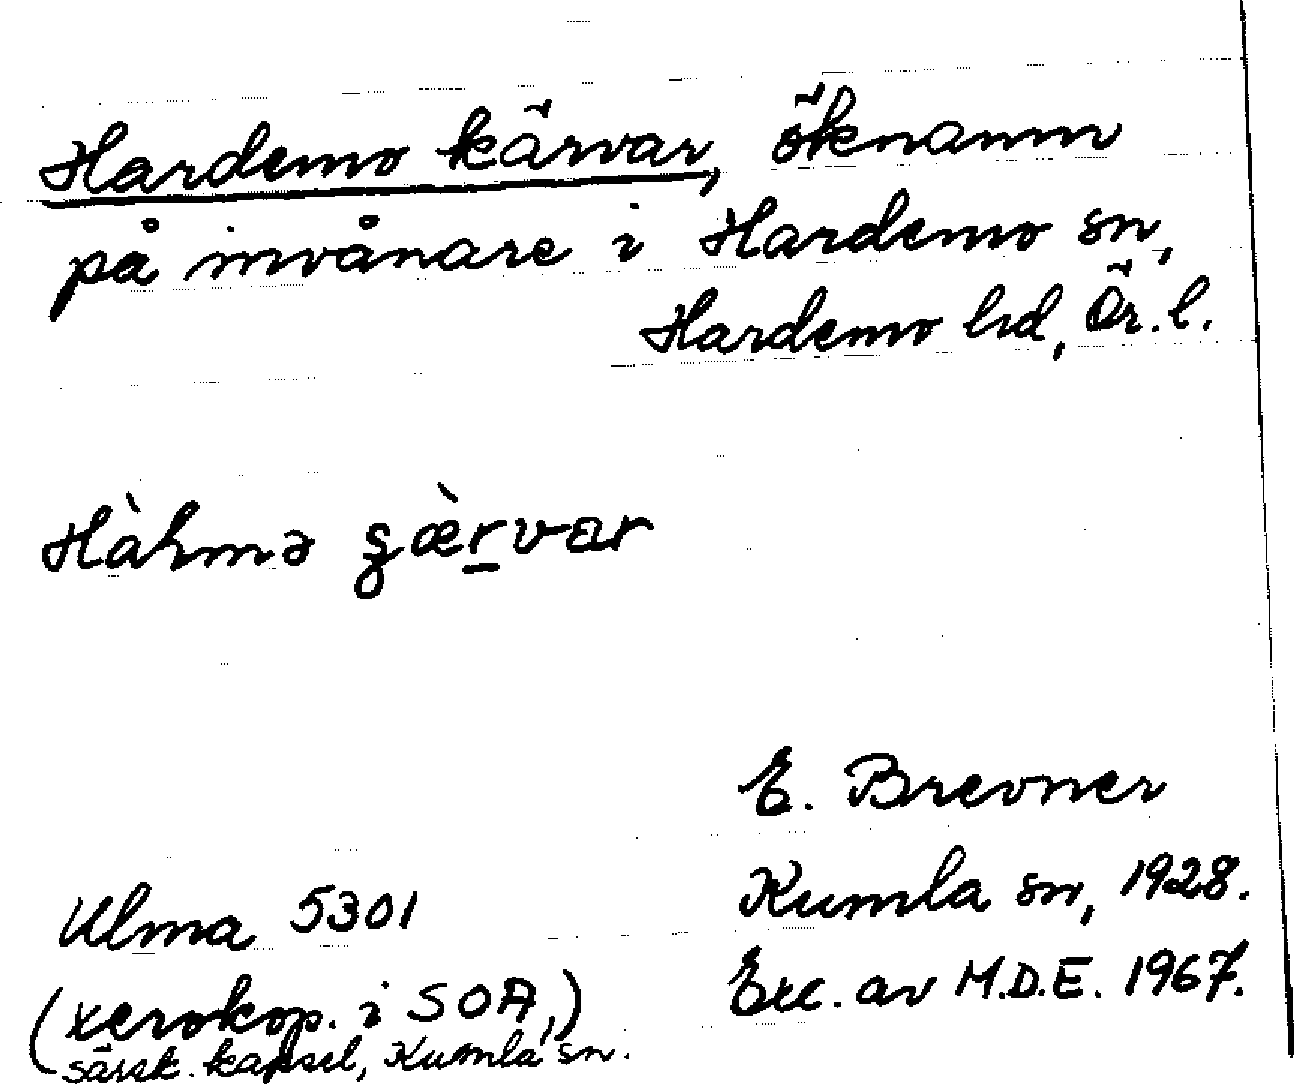 Hardemo kärvar, öknamn
på invånare i Hardemo sn,
Hardemo hd, Ör. l.
Hàhmə gæ̀rvar
E. Brevner
Kumla sn, 1928.
Ulma 5301
Exc. av M.D.E. 1967.
(xerokop. i SOA,)
särsk. kapsel, Kumla sn.